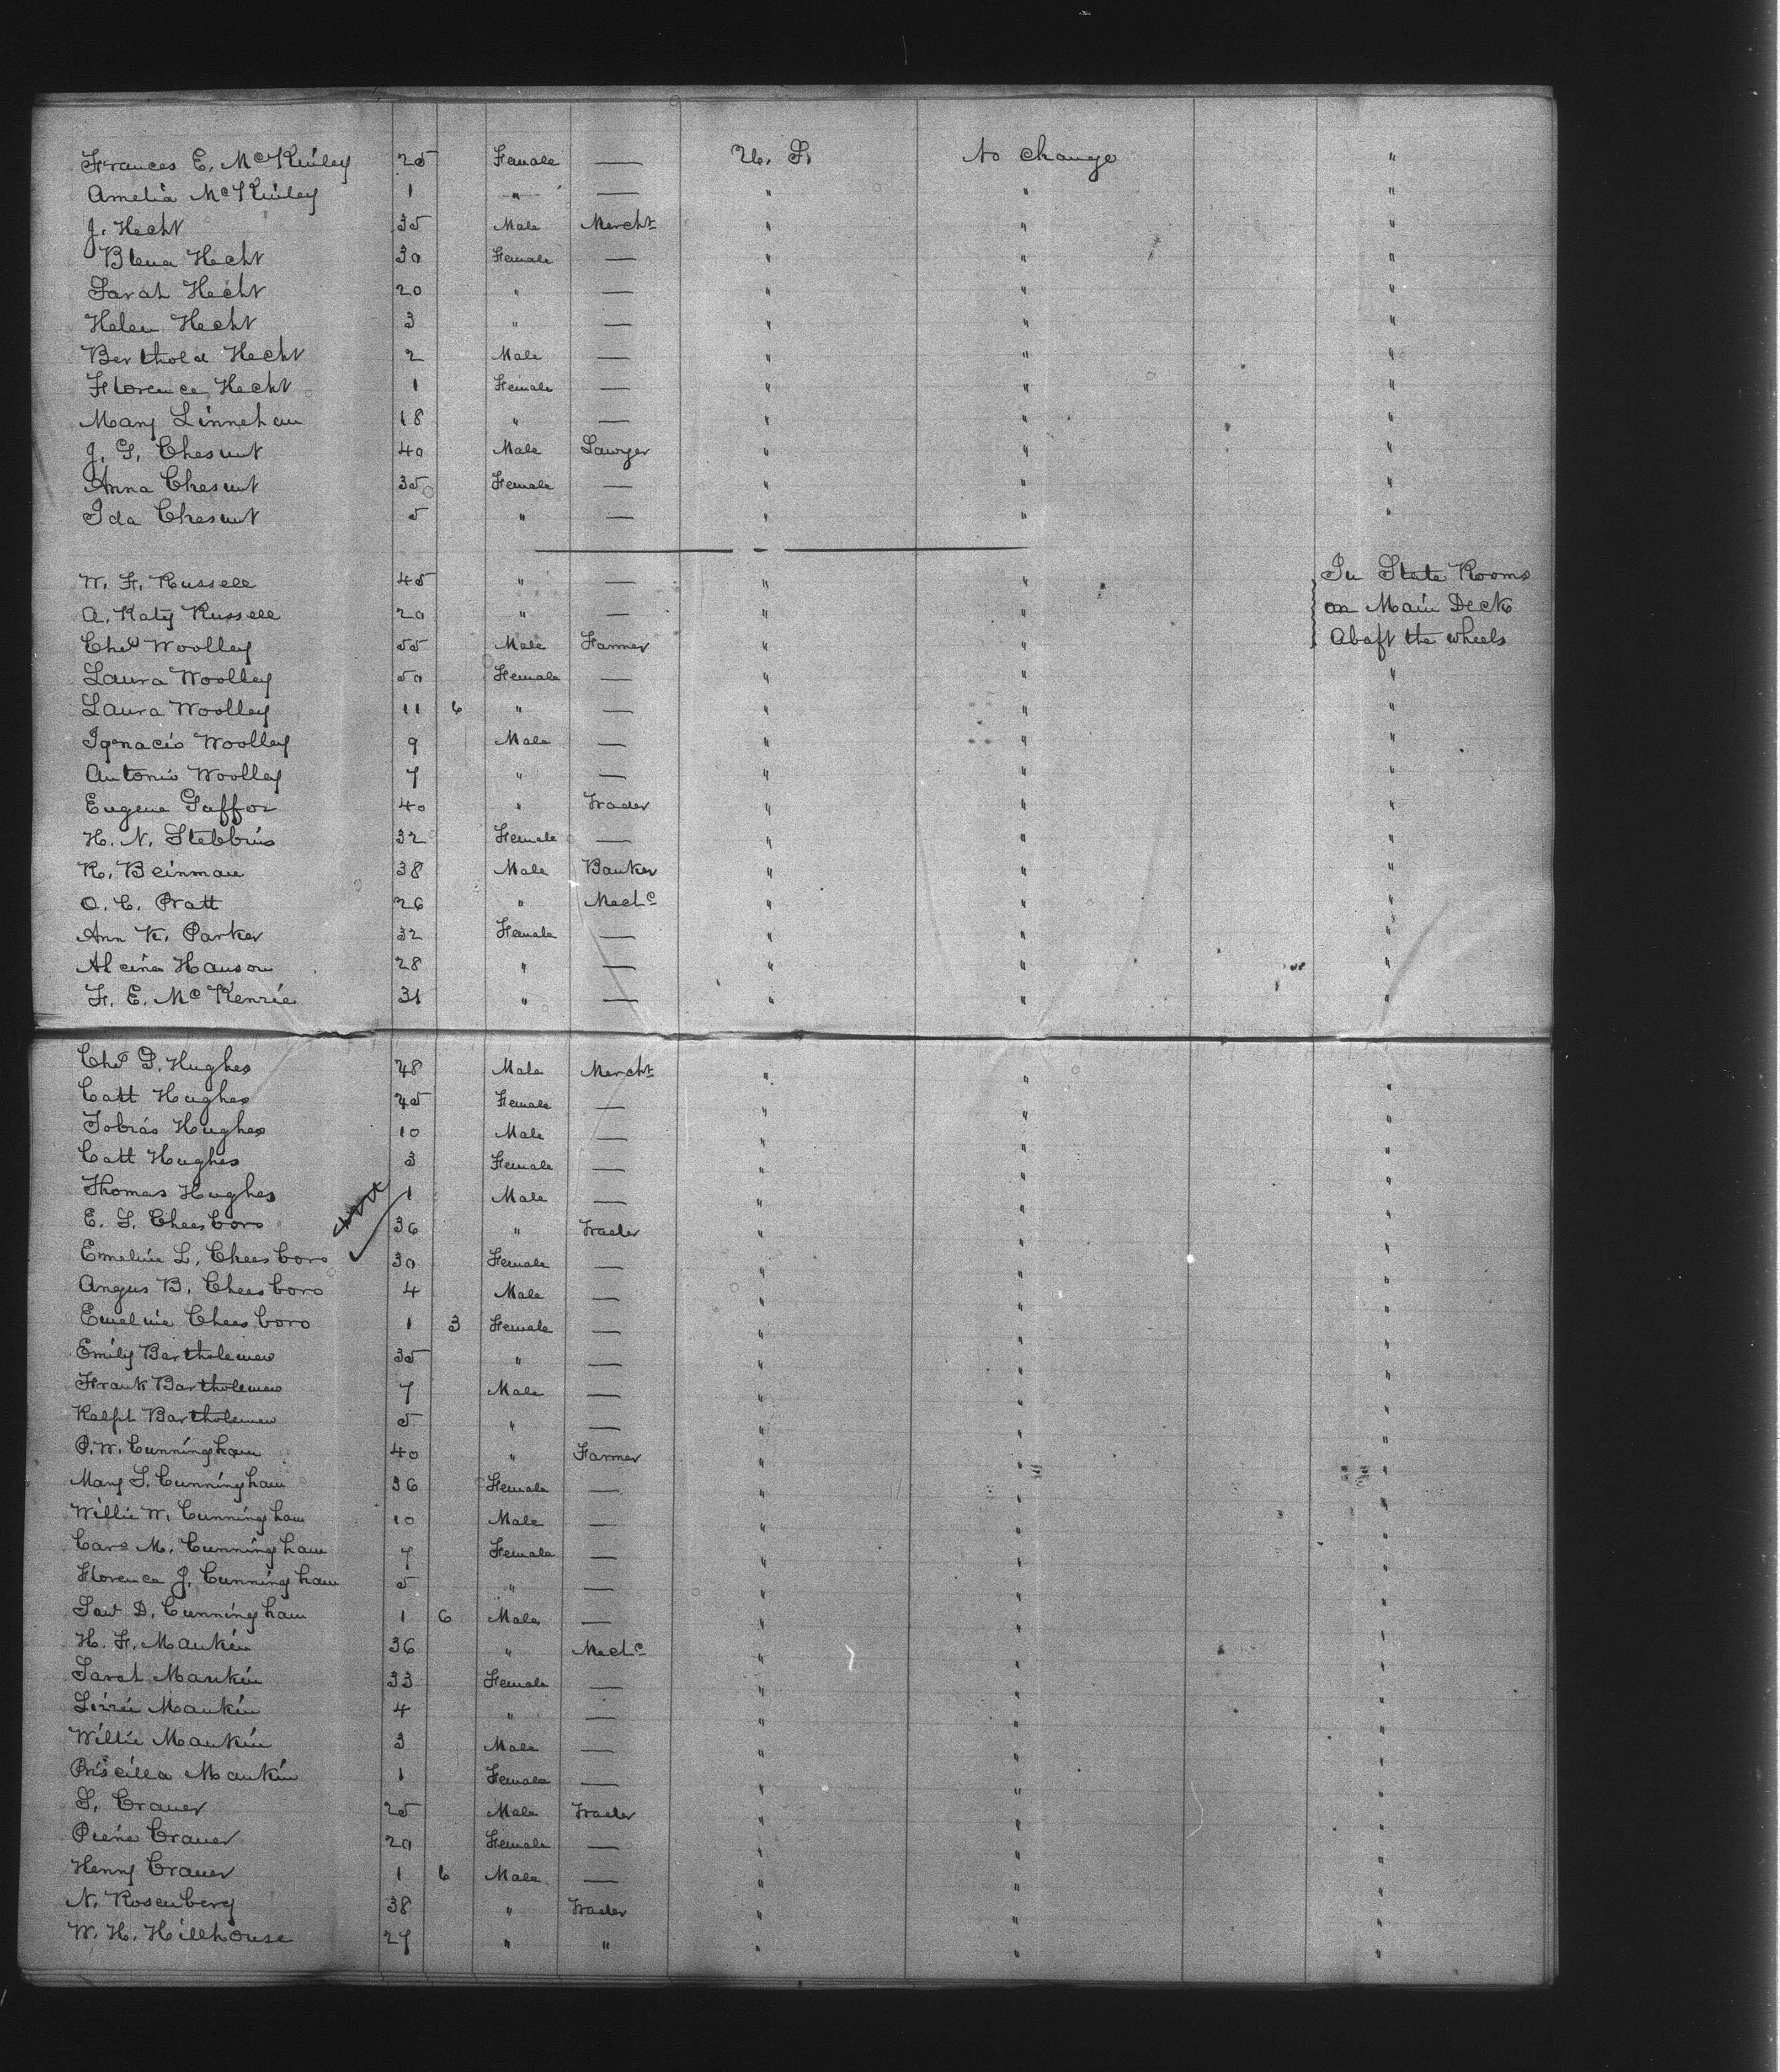 Frances E. McKinley 25 Female — U. S. No change "
Amelia McKinley 1 " — " " "
J. Hecht 35 Male Mercht " " "
Blena Hecht 30 Female — " " "
Sarah Hecht 20 " — " " "
Helen Hecht 3 " — " " "
Berthold Hecht 2 Male — " " "
Florence Hecht 1 Female — " " "
Mary Linnehan 18 " — " " "
J. G. Chesnut 40 Male Lawyer " " "
Anna Chesnut 35 Female — " " "
Ida Chesnut 5 " — " " "
W. F. Russell 45 " — " " In State Rooms
A. Katy Russell 20 " — " " on Main Deck
Chas Woolley 55 Male Farmer " " Abaft the wheels
Laura Woolley 50 Female — " " "
Laura Woolley 11 6 " — " " "
Ignacio Woolley 9 Male — " " "
Antonio Woolley 7 " — " " "
Eugene Saffor 40 " Trader " " "
H. N. Stebbins 32 Female — " " "
R. Beinman 38 Male Banker " " "
O. C. Pratt 26 " Mechc " " "
Ann K. Parker 32 Female — " " "
Alcina Hanson 28 " — " " "
F. E. McKenzie 31 " — " " "
Chas S. Hughes 48 Male Mercht " " "
Catt Hughes 45 Female — " " "
Tobias Hughes 10 Male — " " "
Catt Hughes 3 Female — " " "
Thomas Hughes 1 Male — " " "
E. S. Cheesboro 36 " Trader " " "
Emeline L. Cheesboro 30 Female — " " "
Angus B. Cheesboro 4 Male — " " "
Emeline Cheesboro 1 3 Female — " " "
Emily Bartholemew 35 " — " " "
Frank Bartholemew 7 Male — " " "
Ralph Bartholemew 5 " — " " "
P. W. Cunningham 40 " Farmer " " "
Mary S. Cunningham 36 Female — " " "
Willie W. Cunningham 10 Male — " " "
Cara M. Cunningham 7 Female — " " "
Florence J. Cunningham 5 " — " " "
D. Cunningham 1 6 Male — " " "
H. F. Mankin 36 " Mechc " " "
Sarah Mankin 33 Female — " " "
Lizzie Mankin 4 " — " " "
Willie Mankin 3 Male — " " "
Priscilla Mankin 1 Female — " " "
S. Craner 25 Male Trader " " "
Craner 20 Female — " " "
Henry Craner 1 6 Male — " " "
N. Rosenberg 38 " Trader " " "
W. H. Hillhouse 27 " " " " "